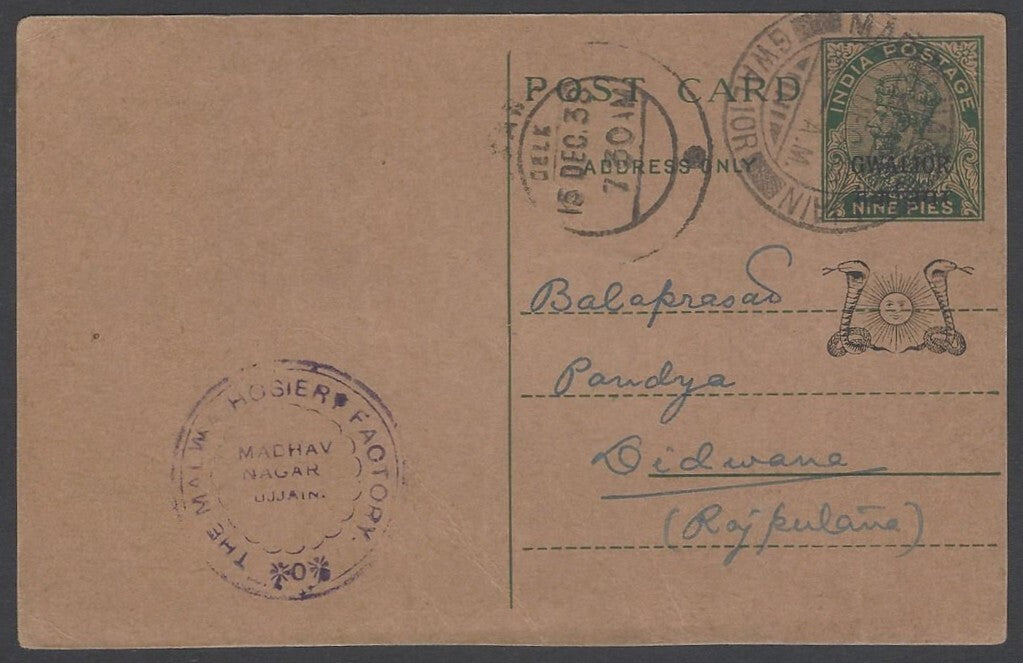 POST CARD
ADDRESS ONLY
INDIA POSTAGE
GWALIOR
NINE PIES
GWALIOR
A.M.
DELR
15 DEC. 38
7-30 AM
Balaprasad
Pandya
Didwana
(Rajputana)
THE MALWA HOSIERY FACTORY.
MADHAV
NAGAR
UJJAIN.